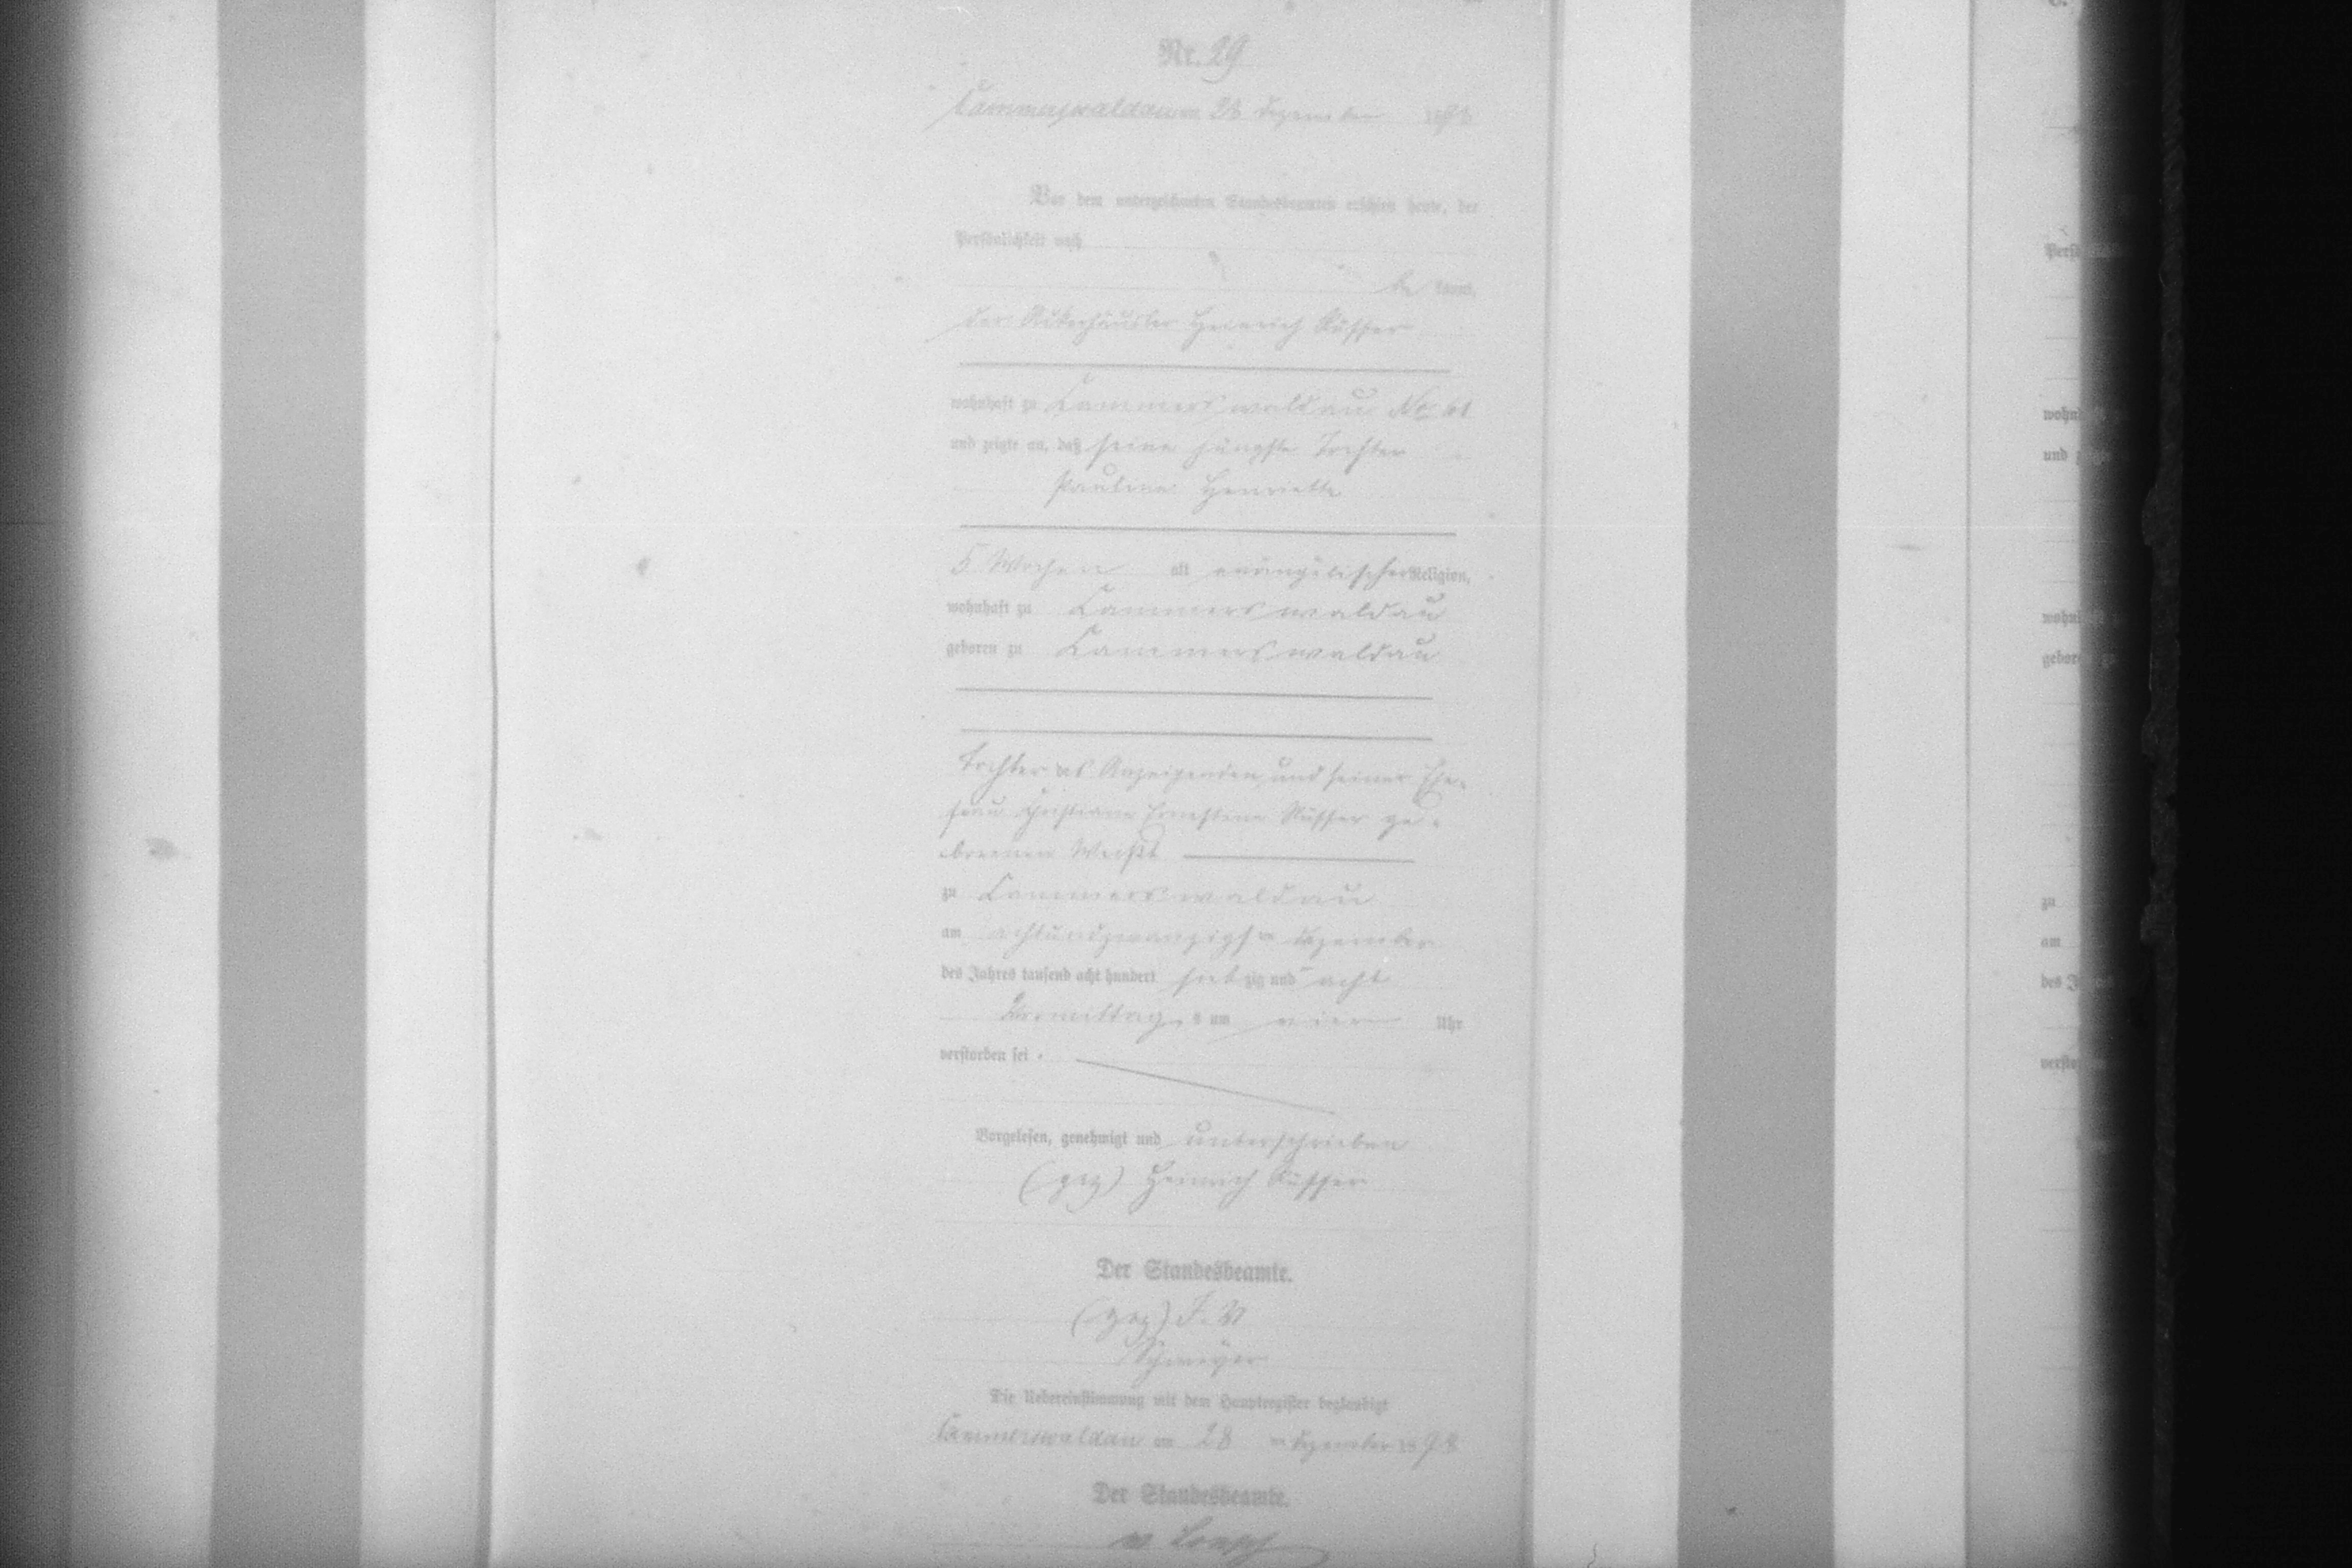 Nr. 29
Cammerswaldau am 28 Dezember 1878
Vor dem unterzeichneten Standesbeamten erschien heute, der
Persönlichkeit nach
be kannt,
der Ackerhäusler Heinrich
wohnhaft zu Cammerswaldau No 61
und zeigte an, daß seine jüngste Tochter
Pauline Henriette
5 Wochen alt evangelischer Religion,
wohnhaft zu Cammerswaldau
geboren zu Cammerswaldau
Tochter des Anzeigenden und seiner Ehe-
frau Christiane Ernestine ge-
borenen
zu Cammerswaldau
am achtundzwanzigsten Dezember
des Jahres tausend acht hundert siebzig und acht
Vormittags um vier Uhr
verstorben sei.
Vorgelesen, genehmigt und unterschrieben
(gez) Heinrich
Der Standesbeamte.
(gez) J. V
Die Uebereinstimmung mit dem Hauptregister beglaubigt
Cammerswaldau am 28 ten Dezember 1878
Der Standesbeamte.